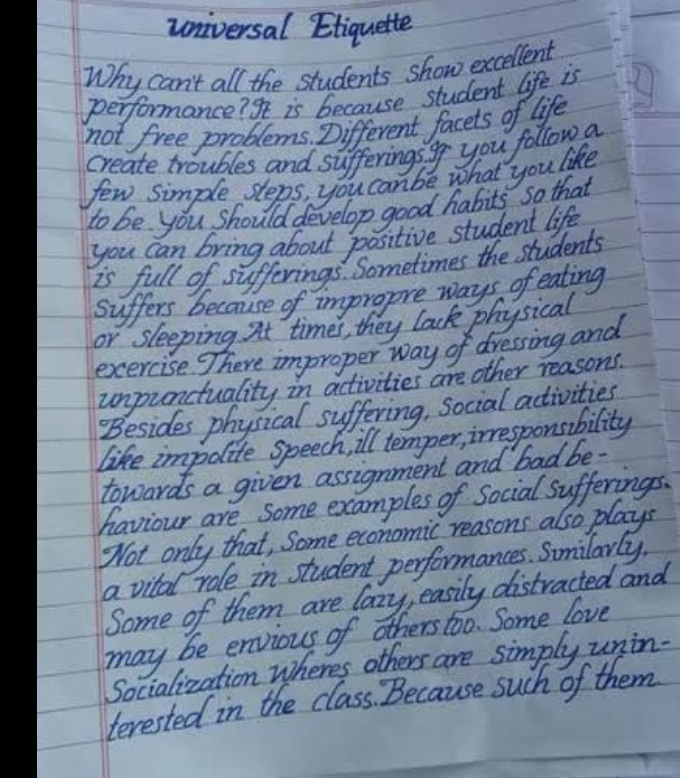 universal Etiquette
Why can't all the students show excellent
performance? It is because student life is
not free problems. Different facets of life
create troubles and sufferings. If you follow a
few simple steps, you can be what you like
to be. you should develop good habits so that
you can bring about positive student life
is full of sufferings. Sometimes the students
suffers because of impropre ways of eating
or sleeping. At times, they lack physical
exercise. There improper way of dressing and
unpunctuality in activities are other reasons.
Besides physical suffering, Social activities
like impolite speech, ill temper, irresponsibility
towards a given assignment and bad be-
haviour are some examples of social sufferings.
Not only that, some economic reasons also plays
a vital role in student performances. Similarly,
Some of them are lazy, easily distracted and
may be envious of others too. Some love
Socialization wheres others are simply unin-
terested in the class. Because such of them